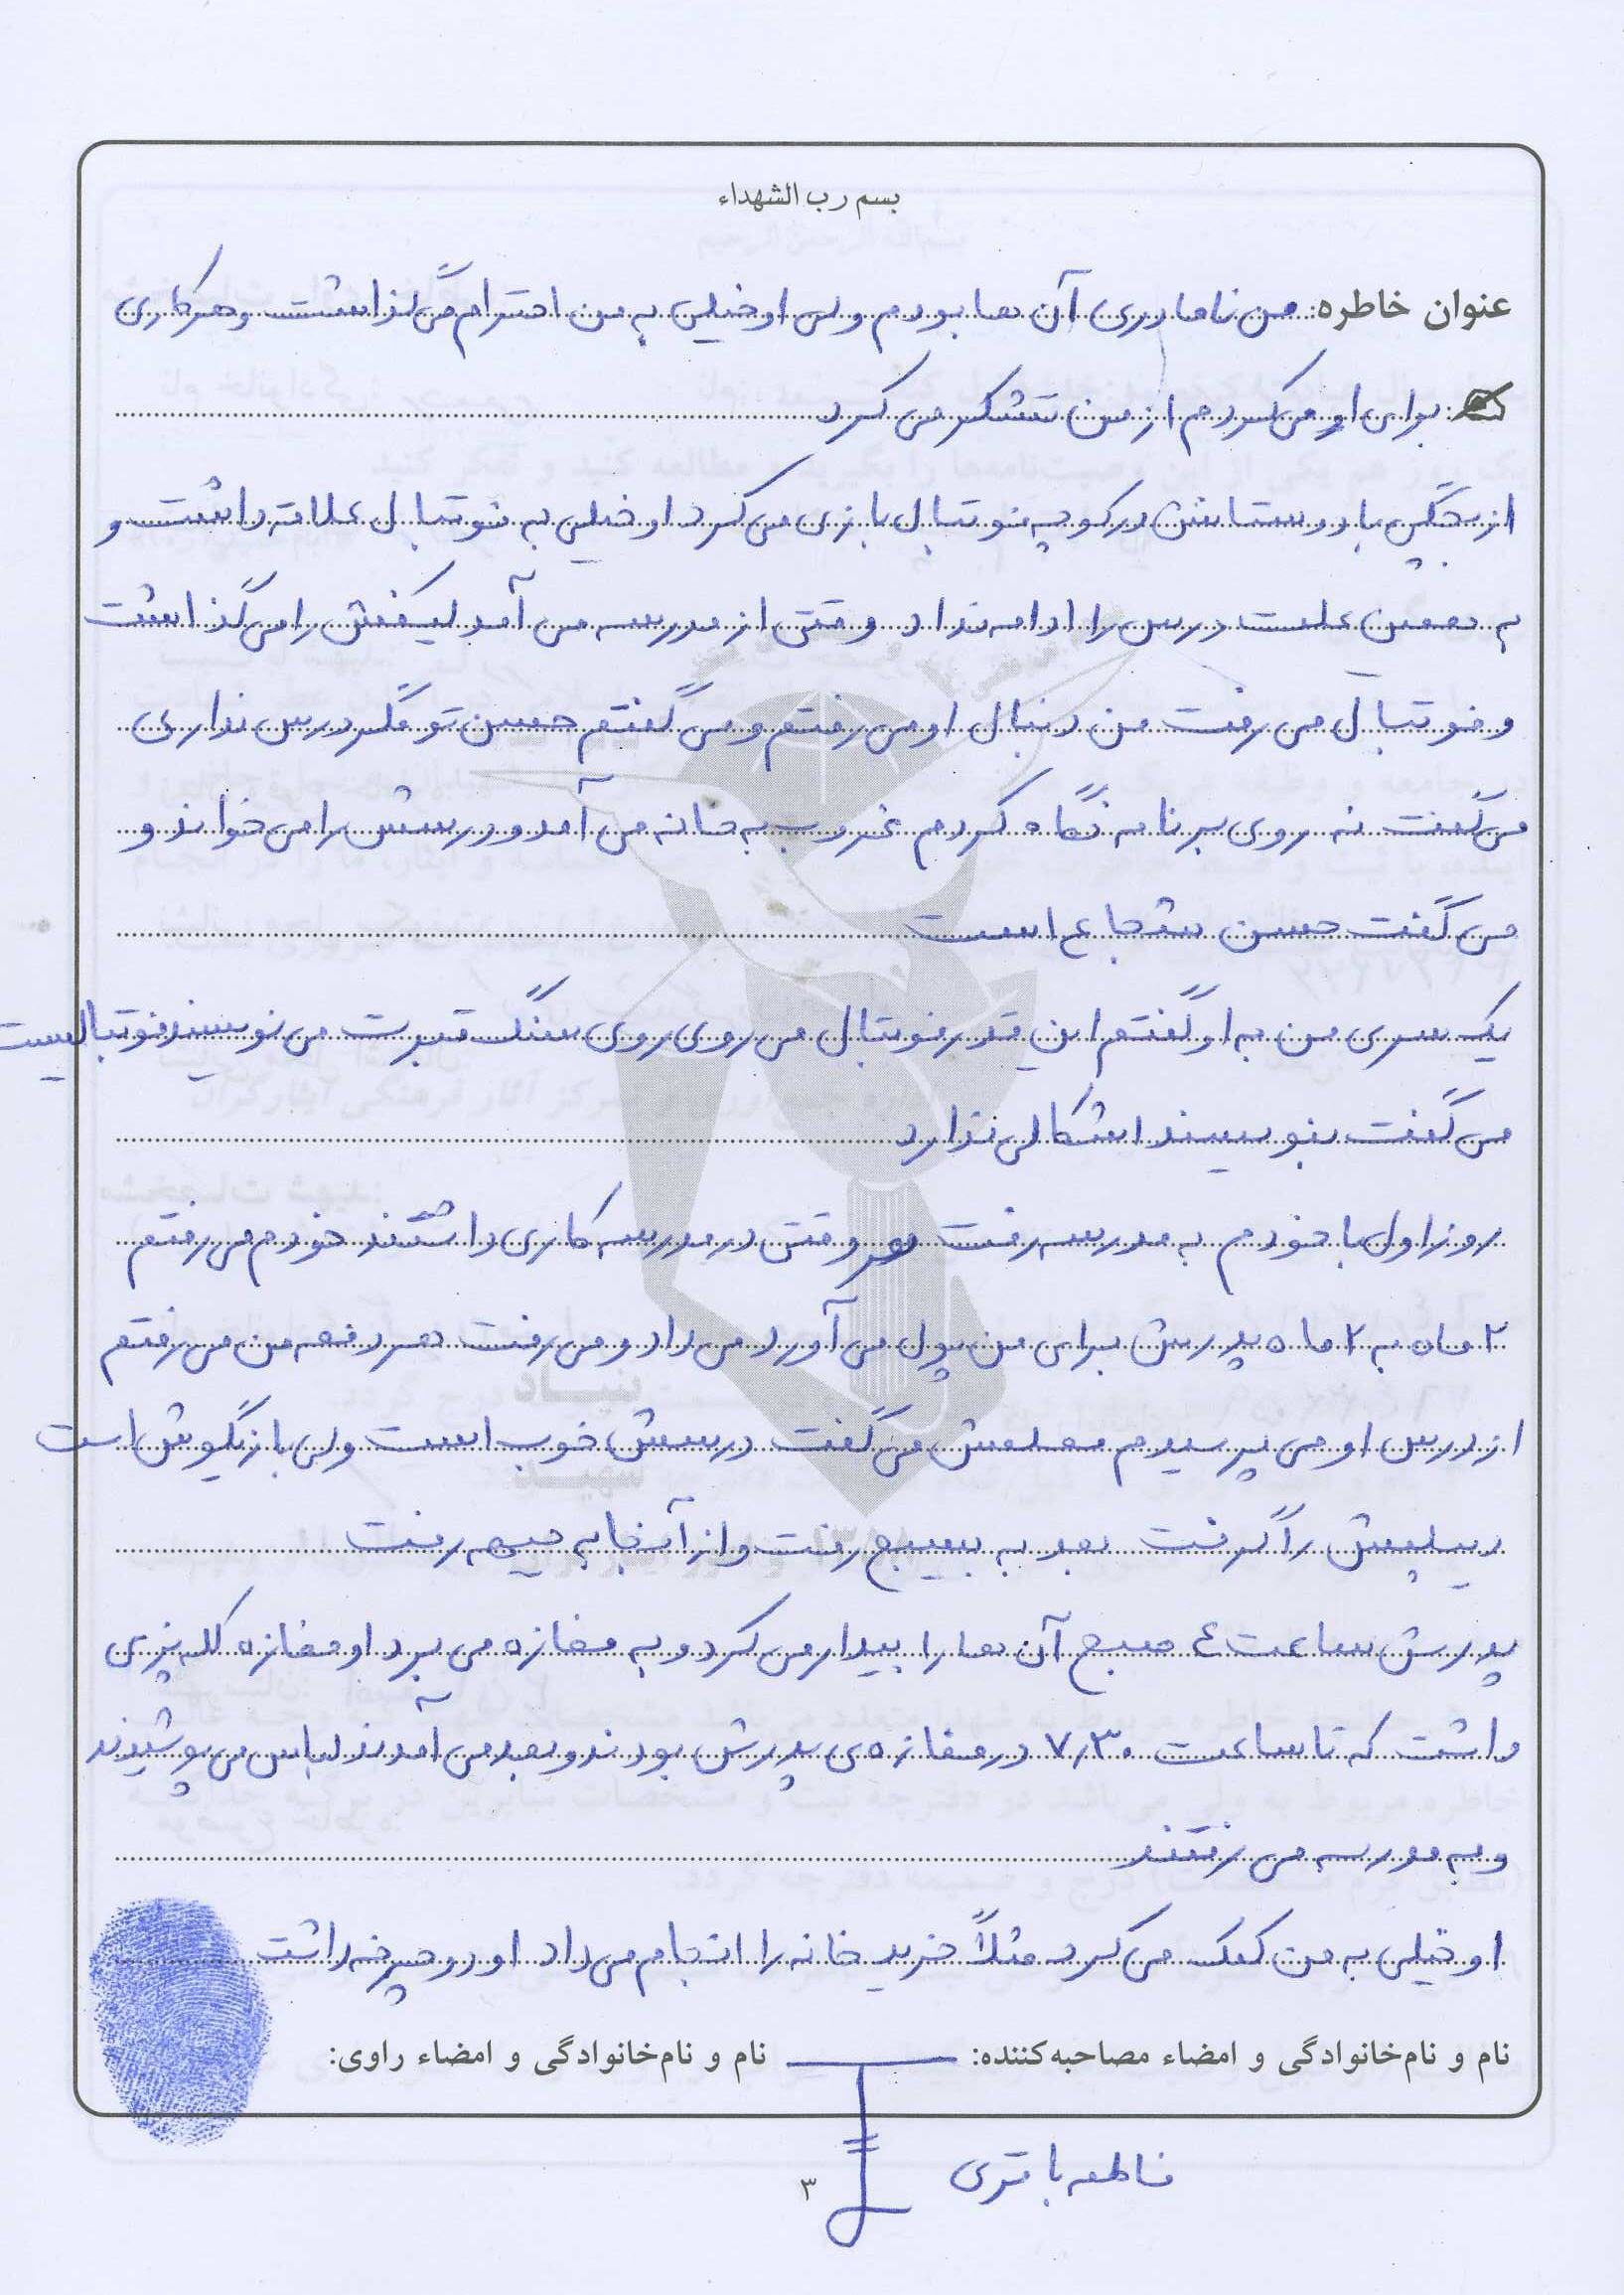 بسم رب الشهداء
عنوان خاطره: من نامادری آن ها بودم ولی او خیلی به من احترام می گذاشت و هر کاری
برای او می کردم از من تشکر می کرد
از بچگی با دوستانش در کوچه فوتبال بازی می کرد او خیلی به فوتبال علاقه داشت و
به همین علت درس را ادامه نداد وقتی از مدرسه می آمد کیفش را می گذاشت
و فوتبال می رفت من دنبال او می رفتم و می گفتم حسن تو مگر درس نداری
می گفت نه روی برنامه نگاه کردم غروب به خانه می آمد و درسش را می خواند و
می گفت حسن شجاع است
یک سری من به او گفتم این قدر فوتبال می روی روی سنگ قبرت می نویسند فوتبالیست
می گفت بنویسند اشکالی ندارد
روز اول با خودم به مدرسه رفت هر وقتی در مدرسه کاری داشتند خودم می رفتم
۲ ماه به ۲ ماه پدرش برای من پول می آورد می داد و می رفت هر دفعه من می رفتم
از درس او می پرسیدم معلمش می گفت درسش خوب است ولی بازیگوش است
دیپلمش را گرفت بعد به بسیج رفت و از آنجا به جبهه رفت
پدرش ساعت ٤ صبح آن ها را بیدار می کرد و به مغازه می برد او مغازه کله پزی
داشت که تا ساعت ۷٫۳۰ در مغازه ی پدرش بودند و بعد می آمدند لباس می پوشیدند
و به مدرسه می رفتند
او خیلی به من کمک می کرد مثلاً خرید خانه را انجام می داد او دوچرخه داشت
نام و نام‌خانوادگی و امضاء مصاحبه‌کننده: نام و نام‌خانوادگی و امضاء راوی:
فاطمه باقری
۳